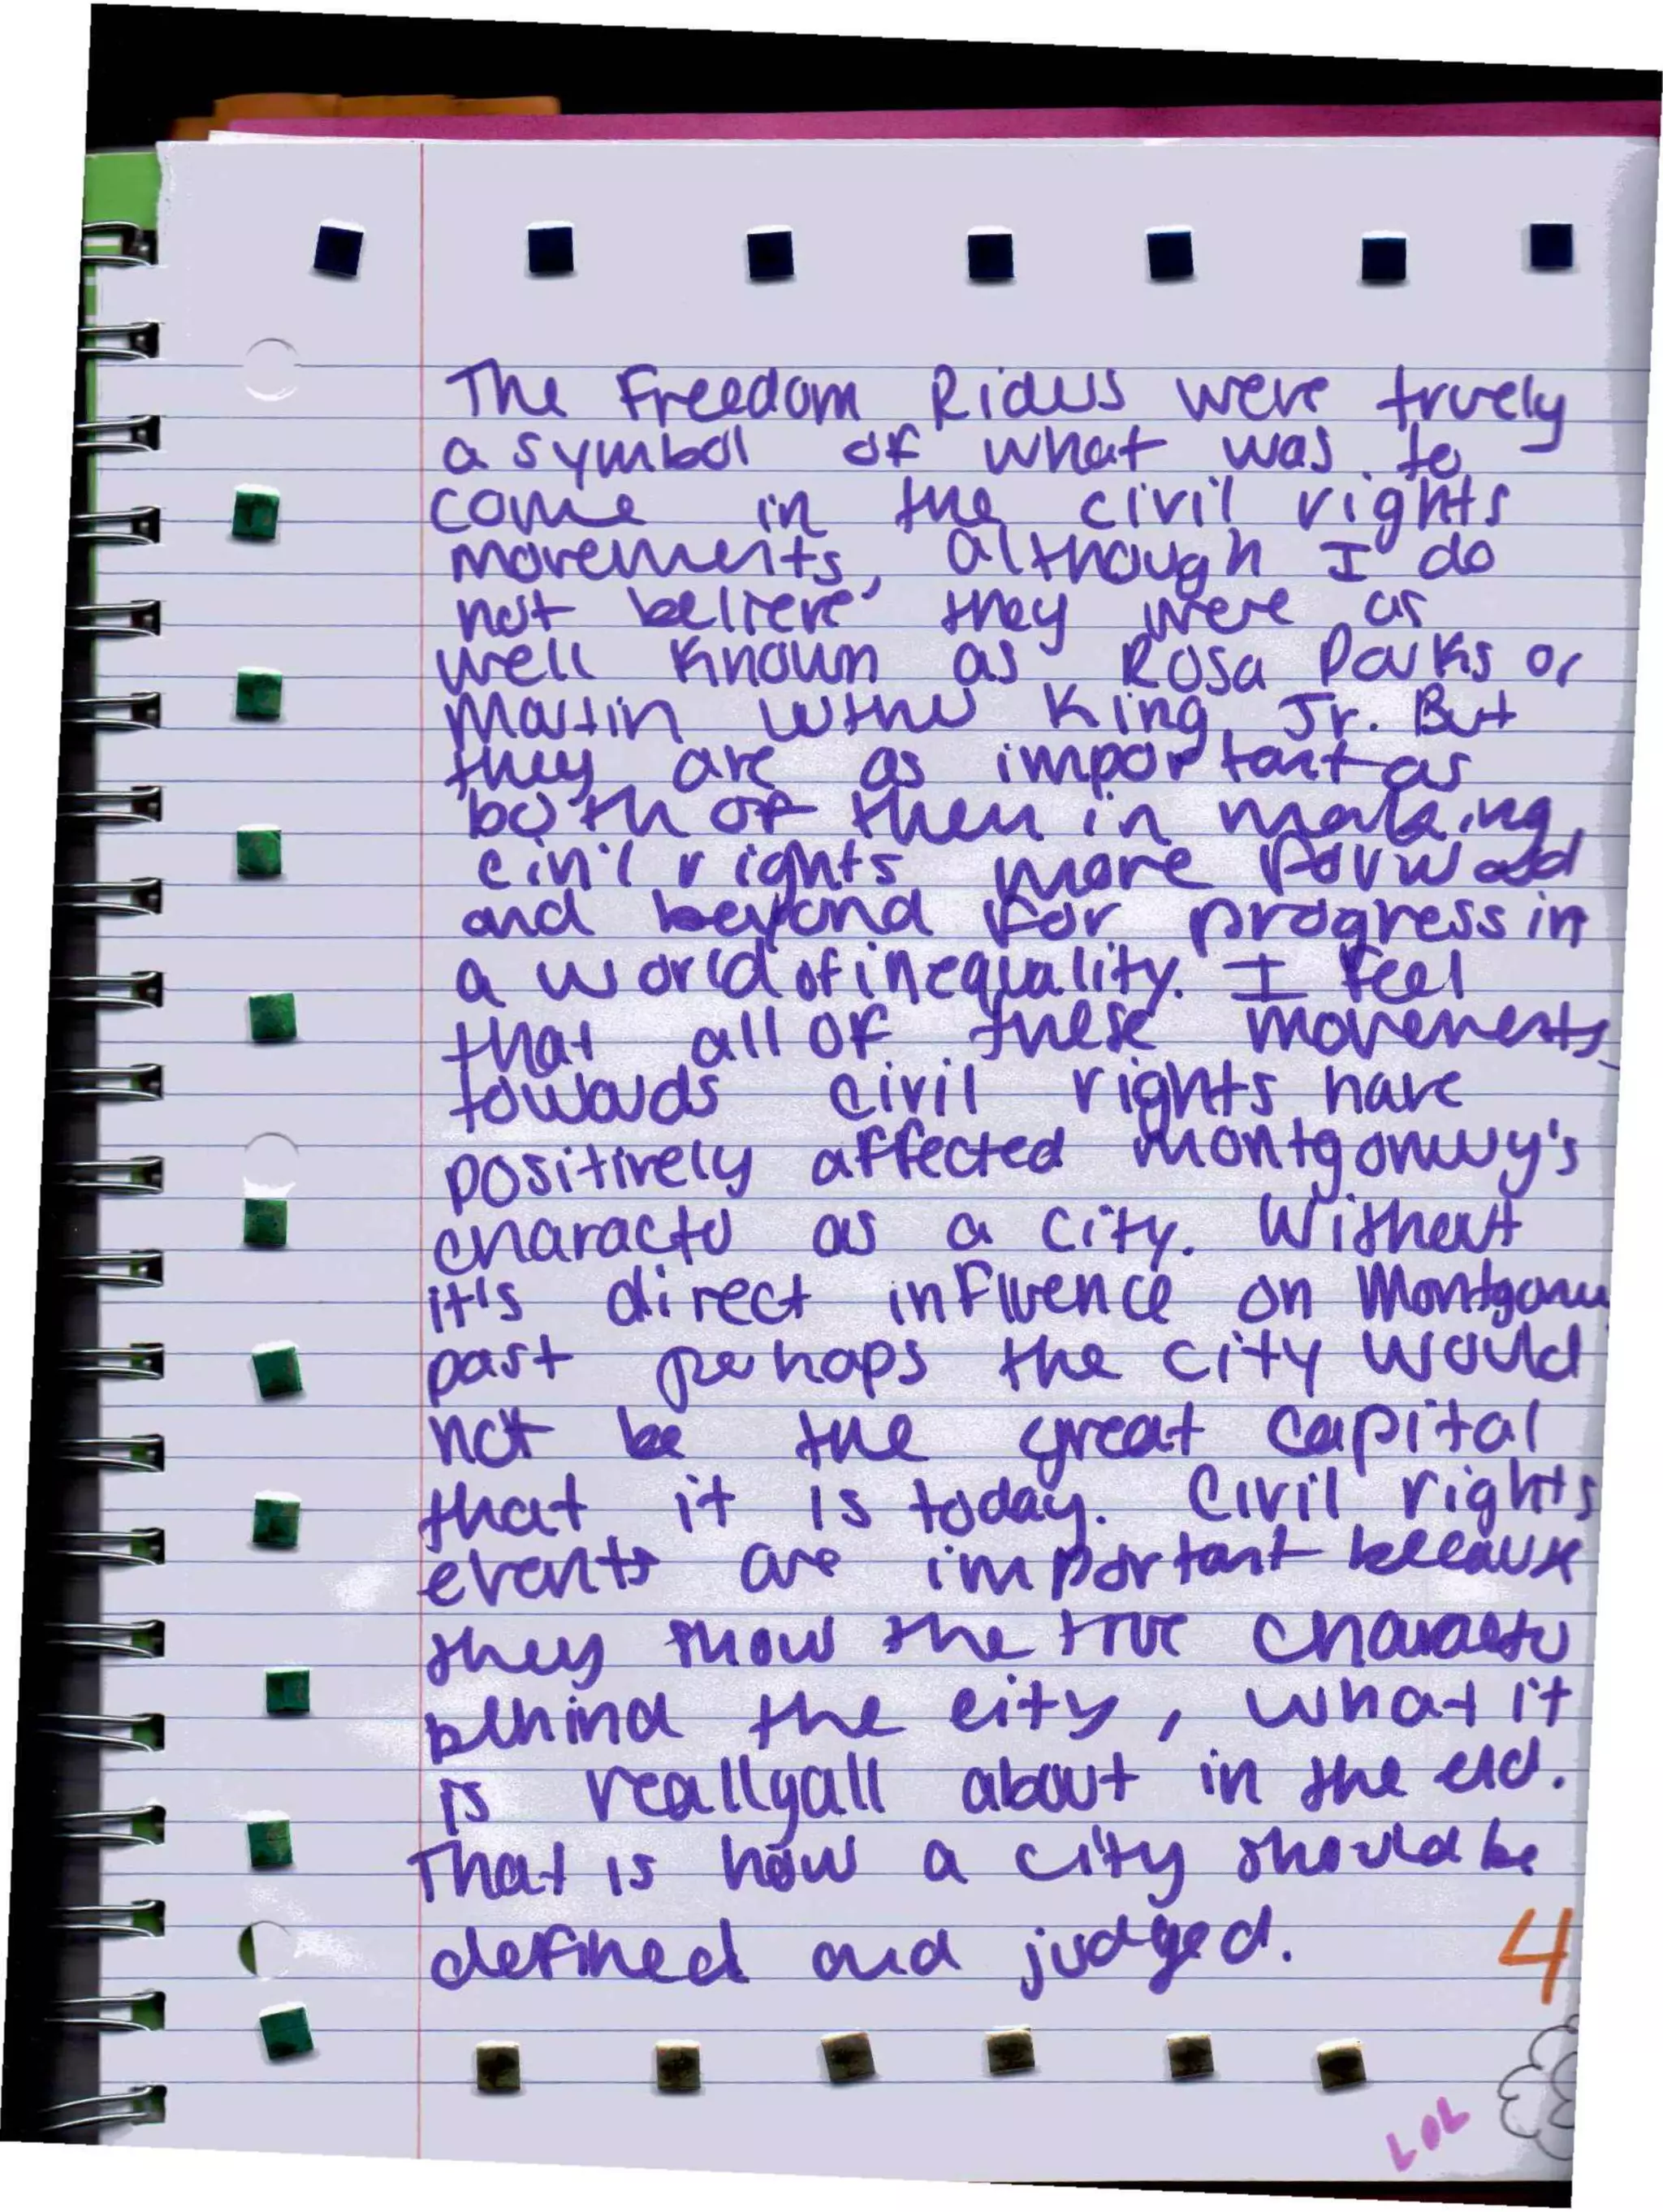 The Freedom Riders were truely
a symbol of what was to
come in the civil rights
movements, although I do
not believe they were as
well known as Rosa Parks or
Martin Luther King, Jr. But
they are as important as
both of them in making
civil rights move forward
and beyond for progress in
a world of inequality. I feel
that all of these movements
towards civil rights have
positively affected Montgomery's
character as a city. Without
it's direct influence on
past perhaps the city would
not be the great capital
that it is today. Civil rights
events are important because
they show the true character
behind the city, what it
is really all about in the end.
That is how a city should be
defined and judged.
4
LOL